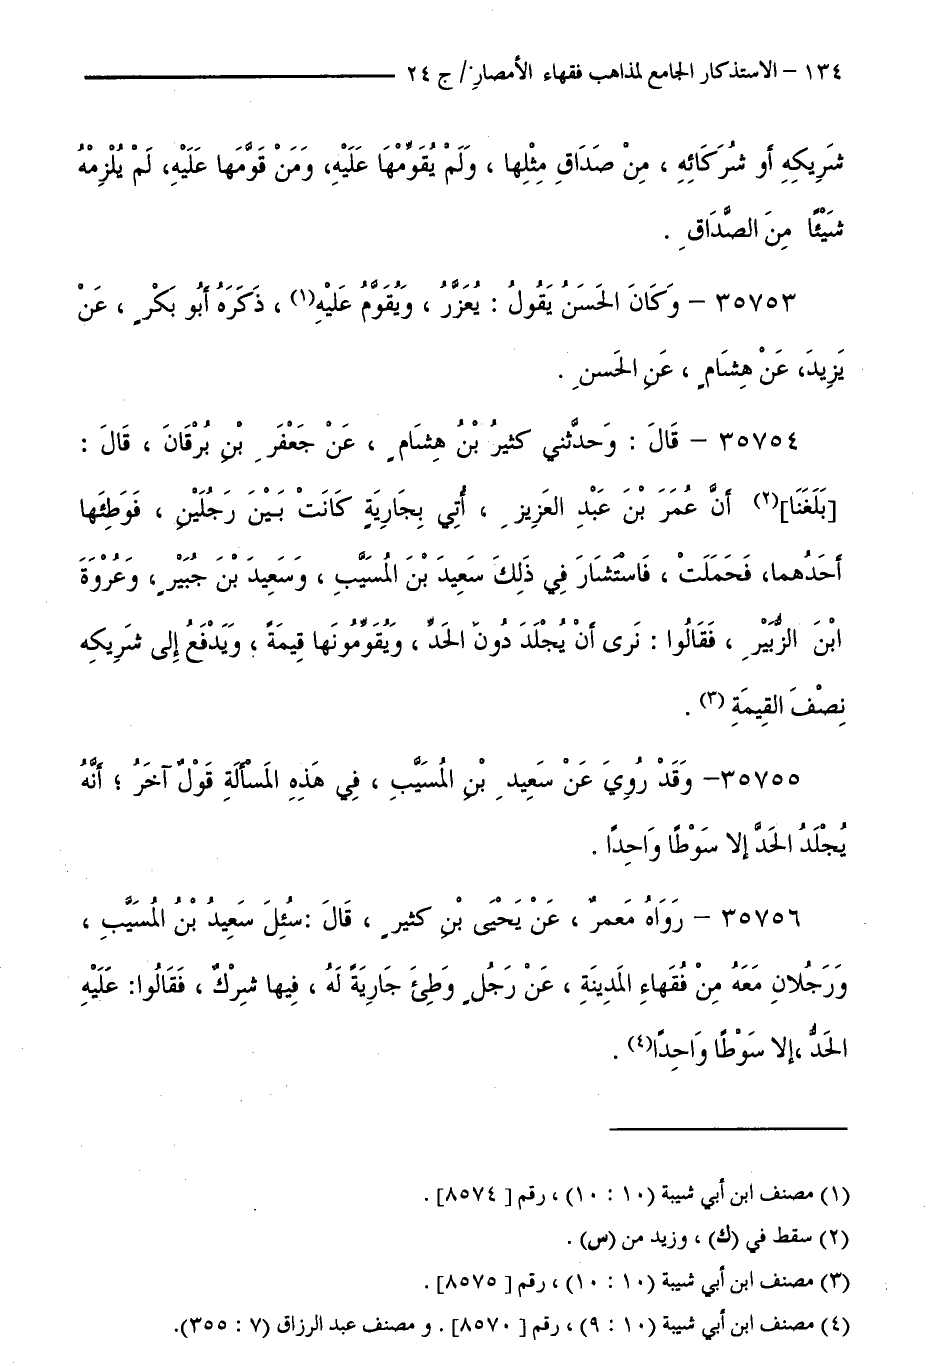 ١٣٤ – الاستذكار الجامع لمذاهب فقهاء الأمصار / ج ٢٤
شَرِيكِهِ أو شُرَكَائِهِ ، مِنْ صَدَاقِ مِثْلِها ، وَلَمْ يُقَوِّمْهَا عَلَيْهِ، وَمَنْ قَوَّمَها عَلَيْهِ، لَمْ يُلْزِمْهُ
شَيْئًا مِنَ الصَّدَاقِ .
٣٥٧٥٣ – وَكَانَ الحَسَنُ يَقُولُ : يُعَزَّرُ ، وَيُقَوَّمُ عَلَيْهِ(١) ، ذَكَرَهُ أَبُو بَكْرٍ ، عَنْ
يَزِيدَ، عَنْ هِشَامٍ ، عَنِ الحَسنِ .
٣٥٧٥٤ – قَالَ : وَحدَّثني كثيرُ بْنُ هِشَامٍ ، عَنْ جَعْفَرِ بْنِ بُرْقَانَ ، قَالَ :
[بَلَغَنَا](٢) أَنَّ عُمَرَ بْنَ عَبْدِ العَزِيزِ ، أُتِي بِجَارِيَةٍ كَانَتْ بَيْنَ رَجُلَيْنِ ، فَوَطِئَها
أَحَدُهما، فَحَمَلَتْ ، فَاسْتَشَارَ فِي ذَلِكَ سَعِيدَ بْنَ المُسَيَّبِ ، وَسَعِيدَ بْنَ جُبَيْرٍ، وَعُرْوَةَ
ابْنَ الزُّبَيْرِ ، فَقَالُوا : نَرى أَنْ يُجْلَدَ دُونَ الحَدِّ ، وَيُقَوِّمُونَها قِيمَةً ، وَيَدْفَعُ إِلى شَرِيكِه
نِصْفَ القِيمَةِ (٣) .
٣٥٧٥٥– وَقَدْ رُوِيَ عَنْ سَعِيدِ بْنِ المُسَيَّبِ ، فِي هَذِهِ المَسْأَلَةِ قَوْلٌ آخَرُ ؛ أَنَّهُ
يُجْلَدُ الحَدَّ إلا سَوْطًا وَاحِدًا .
٣٥٧٥٦ – رَوَاهُ مَعمرٌ ، عَنْ يَحْيَى بْنِ كثيرٍ ، قَالَ :سُئِلَ سَعِيدُ بْنُ المُسَيَّبِ ،
وَرَجُلانِ مَعَهُ مِنْ فُقَهاءِ المَدِينَةِ ، عَنْ رَجُلٍ وَطِئَ جَارِيَةً لَهُ ، فِيها شِرْكٌ ، فَقَالُوا: عَلَيْهِ
الحَدُّ ،إلا سَوْطًا وَاحِدًا(٤) .
(١) مصنف ابن أبي شيبة (١٠ : ١٠) ، رقم [ ٨٥٧٤] .
(٢) سقط في (ك) ، وزيد من (س) .
(٣) مصنف ابن أبي شيبة (١٠ : ١٠) ، رقم [ ٨٥٧٥] .
(٤) مصنف ابن أبي شيبة (١٠ : ٩) ، رقم [ ٨٥٧٠] . و مصنف عبد الرزاق (٧ : ٣٥٥).